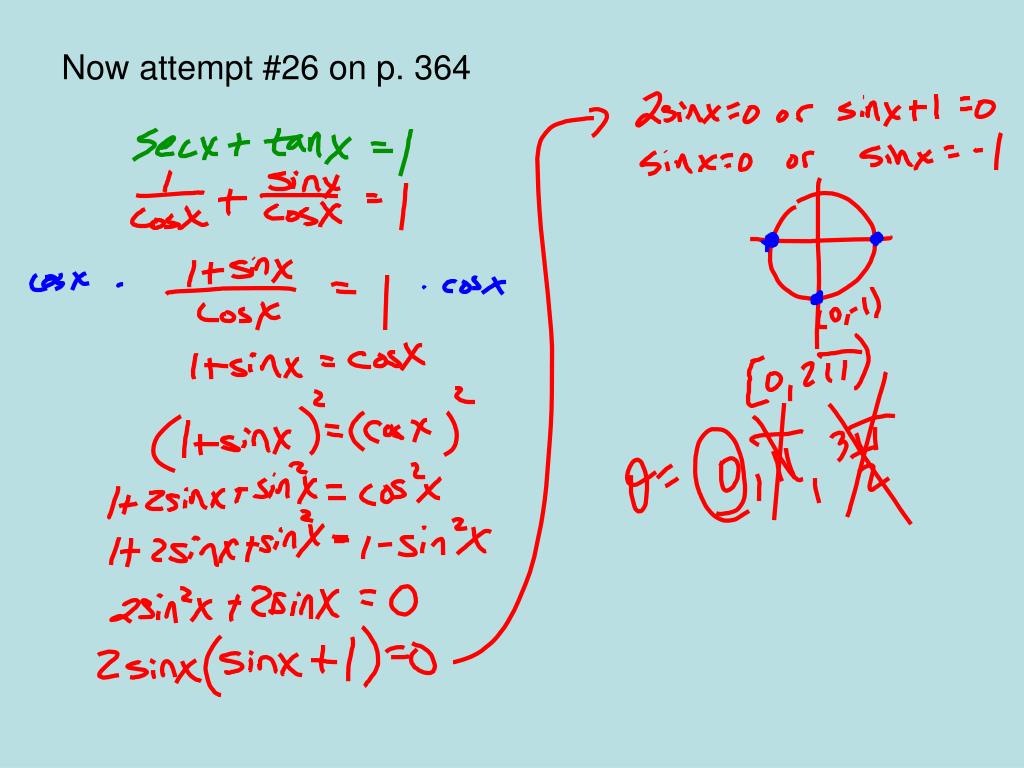 Now attempt #26 on p. 364
secx + tanx = 1
1/cosx + sinx/cosx = 1
cosx · (1+sinx)/cosx = 1 · cosx
1+sinx = cosx
(1+sinx)² = (cosx)²
1+2sinx+sin²x = cos²x
1+2sinx+sin²x = 1-sin²x
2sin²x + 2sinx = 0
2sinx(sinx+1)=0
2sinx=0 or sinx+1=0
sinx=0 or sinx=-1
(0,-1)
[0, 2π)
θ= 0, π, 3π/2